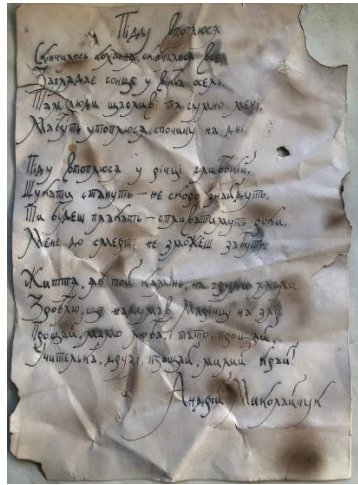 Піду втоплюся
Скінчилось кохання, скінчилося все
Заглядає сонце у вікна осель,
Там люди щасливі та сумно мені,
Мабуть утоплюся, спочину на дні.
Піду втоплюся у річці глибокій,
Шукати стануть – не скоро знайдуть,
Ти будеш плакать – спливатимуть роки,
Мене до смерті не зможеш забуть.
Життя, як той камінь, на груди
Зроблю, що надумав на зло
Прощай, мамо люба, і тато, прощай,
Учителька, друзі, прощай, милий край!
Андрій Миколайчук